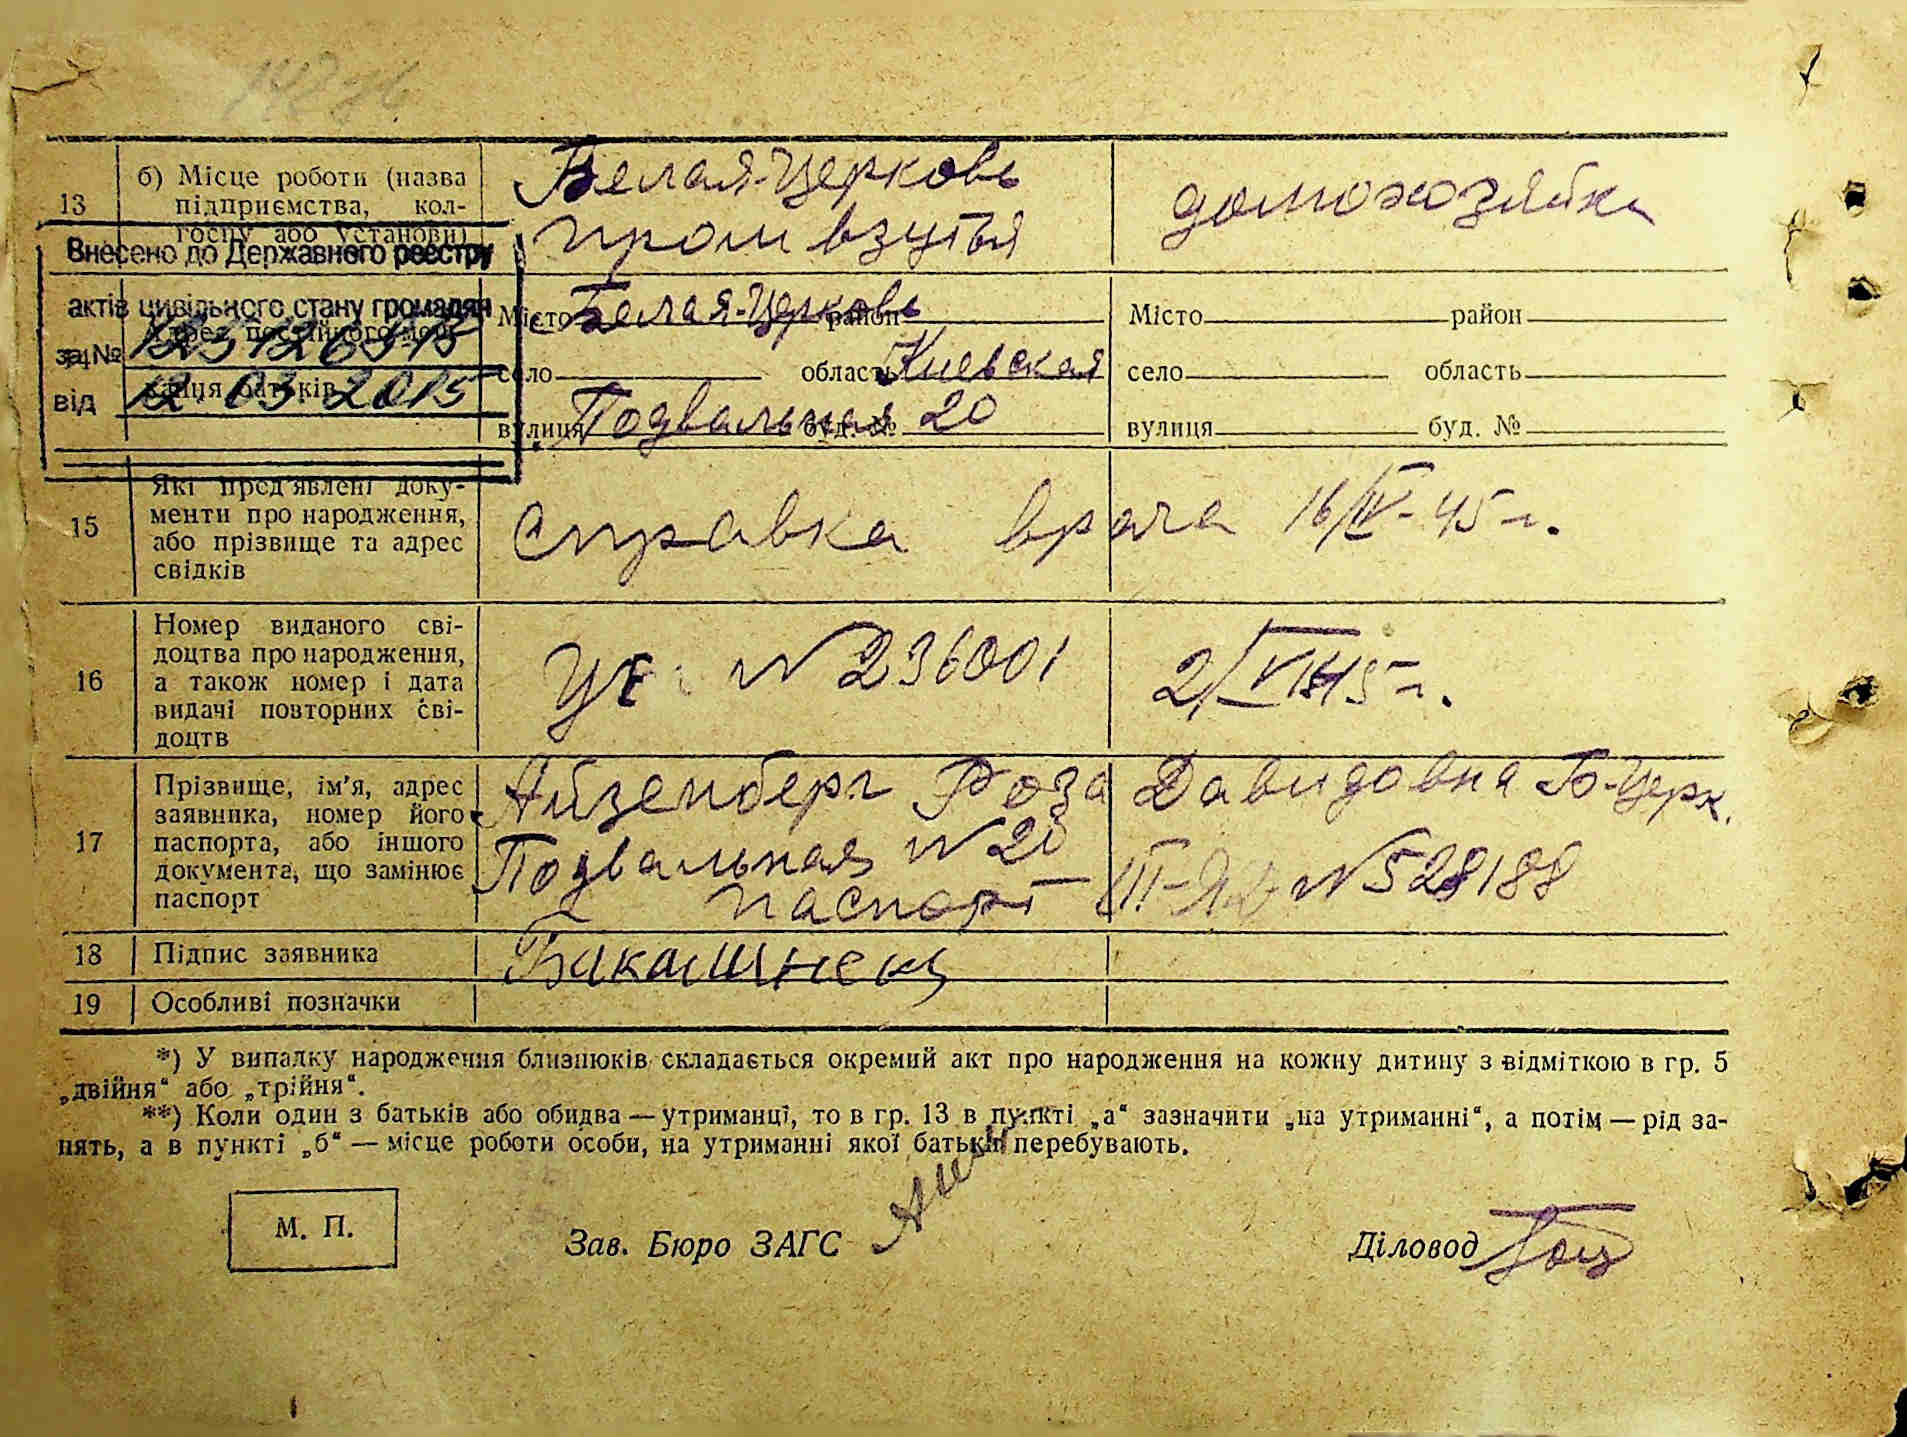 13 б) Місце роботи (назва підприємства, колгоспу або установи)
Белая-Церковь
пром взуття
домохозяйка
Внесено до Державного реєстру
актів цивільного стану громадян
за №
від 12.03.2015
Місто Белая-Церковь район
село область Киевская
вулиця Подвальная буд. № 20
Місто район
село область
вулиця буд. №
15 Які пред'явлені доку-
менти про народження,
або прізвище та адрес
свідків
справка врача 16/IV-45 г.
16 Номер виданого сві-
доцтва про народження,
а також номер і дата
видачі повторних сві-
доцтв
№ 236001
17 Прізвище, ім'я, адрес
заявника, номер його
паспорта, або іншого
документа, що замінює
паспорт
Айзенберг Роза Давидовна Б-Церк.
Подвальная № 20
паспорт № 528188
18 Підпис заявника
19 Особливі позначки
*) У випадку народження близнюків складається окремий акт про народження на кожну дитину з відміткою в гр. 5
„двійня“ або „трійня“.
**) Коли один з батьків або обидва — утриманці, то в гр. 13 в пункті „а“ зазначити „на утриманні“, а потім — рід за-
нять, а в пункті „б“ — місце роботи особи, на утриманні якої батьки перебувають.
М. П.
Зав. Бюро ЗАГС
Діловод